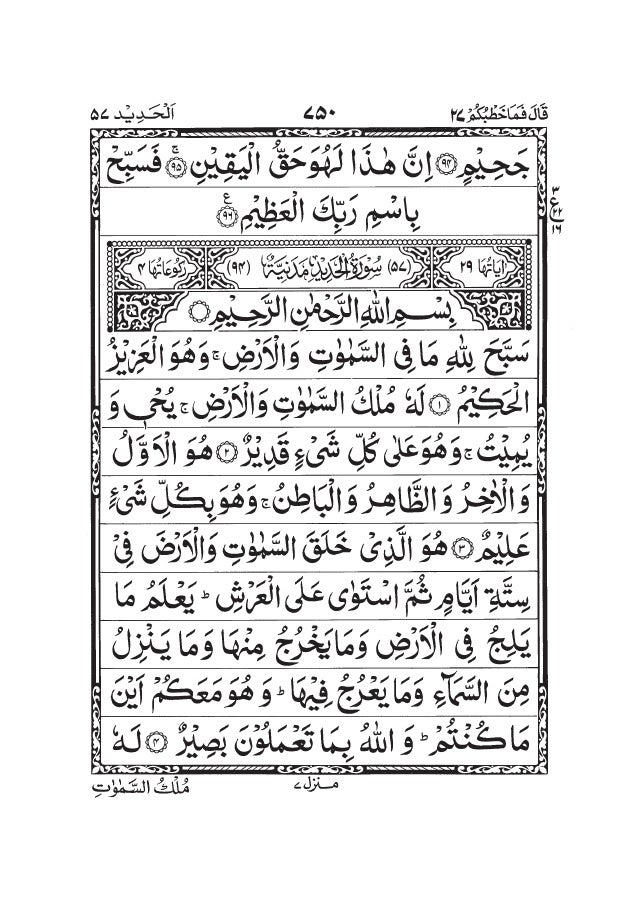 قَالَ فَمَا خَطْبُكُمْ ٢٧ ٧٥٠ اَلْحَدِيْد ٥٧
جَحِيْمٍ ۝٩٤ اِنَّ هٰذَا لَهُوَ حَقُّ الْيَقِيْنِ ۝٩٥ۚ فَسَبِّحْ
بِاسْمِ رَبِّكَ الْعَظِيْمِ ۝٩٦ۧ
٣
ع
٢٢
١٦
اٰيَاتُهَا ٢٩ (٥٧) سُوْرَةُ الْحَدِيْدِ مَدَنِيَّةٌ (٩٤) رُكُوْعَاتُهَا ٤
بِسْمِ اللهِ الرَّحْمٰنِ الرَّحِيْمِ ۝
سَبَّحَ لِلّٰهِ مَا فِى السَّمٰوٰتِ وَالْاَرْضِ ۚ وَهُوَ الْعَزِيْزُ
الْحَكِيْمُ ۝١ لَهٗ مُلْكُ السَّمٰوٰتِ وَالْاَرْضِ ۚ يُحْىٖ وَ
يُمِيْتُ ۚ وَهُوَ عَلٰى كُلِّ شَىْءٍ قَدِيْرٌ ۝٢ هُوَ الْاَوَّلُ
وَالْاٰخِرُ وَالظَّاهِرُ وَالْبَاطِنُ ۚ وَهُوَ بِكُلِّ شَىْءٍ
عَلِيْمٌ ۝٣ هُوَ الَّذِىْ خَلَقَ السَّمٰوٰتِ وَالْاَرْضَ فِىْ
سِتَّةِ اَيَّامٍ ثُمَّ اسْتَوٰى عَلَى الْعَرْشِ ؕ يَعْلَمُ مَا
يَلِجُ فِى الْاَرْضِ وَمَا يَخْرُجُ مِنْهَا وَمَا يَنْزِلُ
مِنَ السَّمَآءِ وَمَا يَعْرُجُ فِيْهَا ؕ وَهُوَ مَعَكُمْ اَيْنَ
مَا كُنْتُمْ ؕ وَاللهُ بِمَا تَعْمَلُوْنَ بَصِيْرٌ ۝٤ لَهٗ
منزل ٧
مُلْكُ السَّمٰوٰتِ